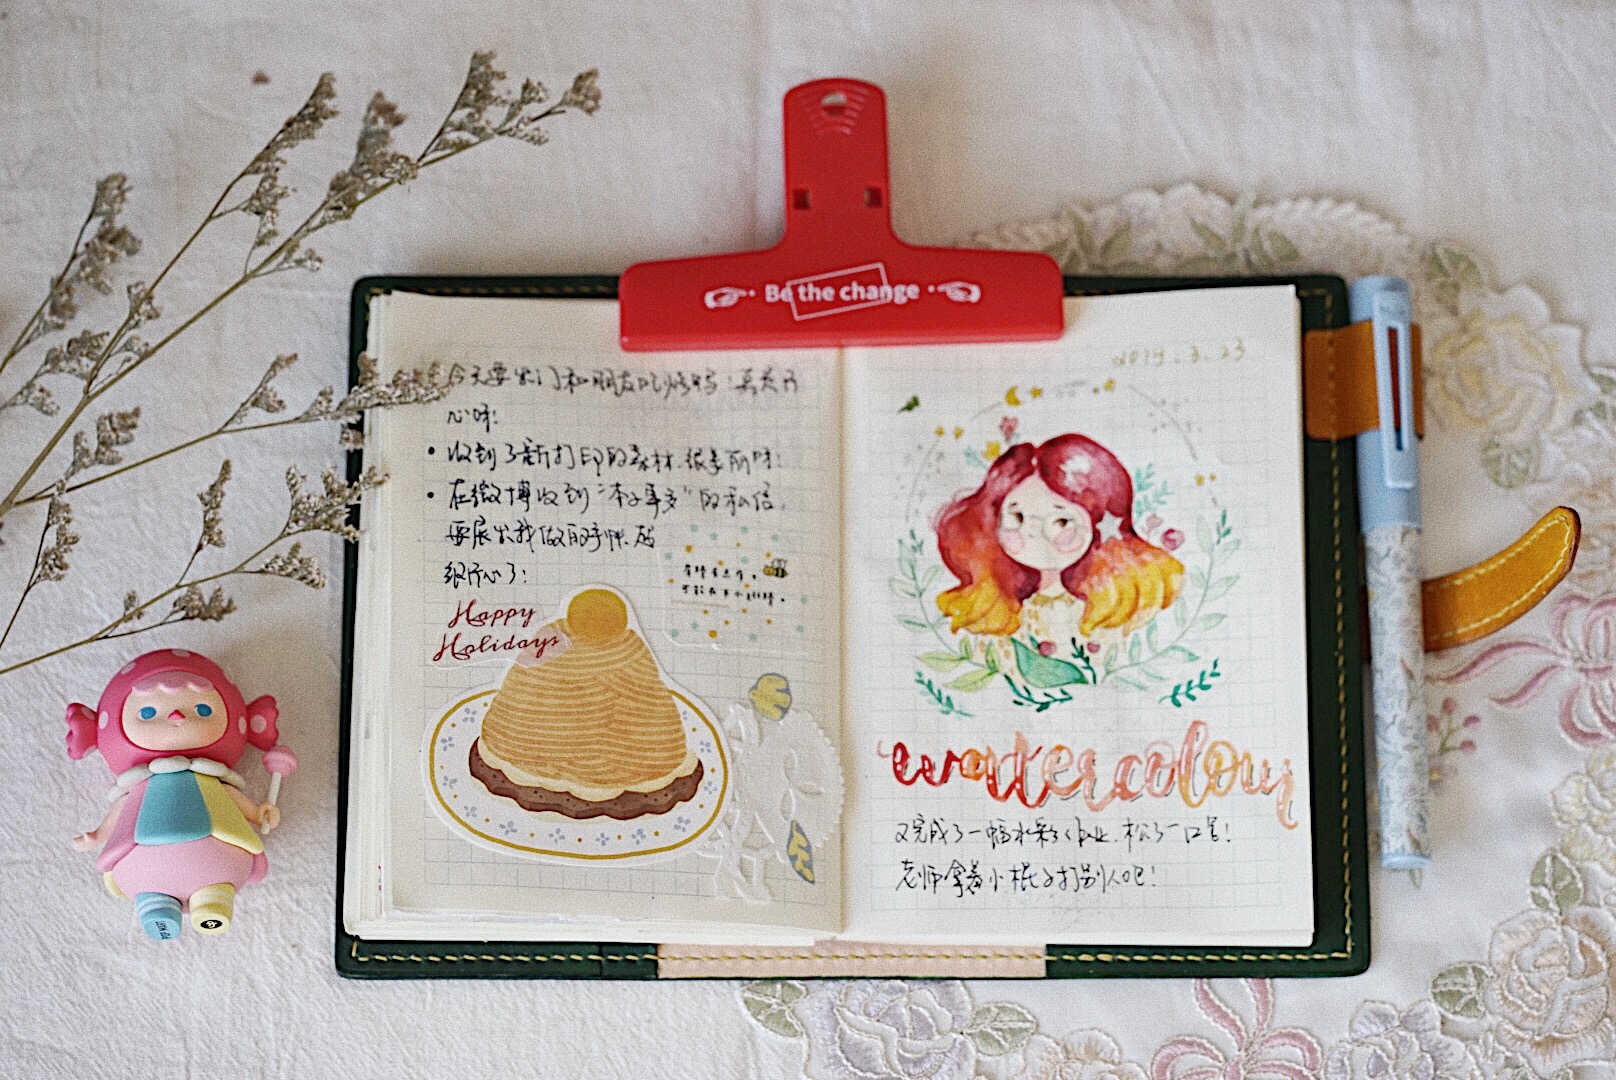 Be the change
今天要出门和朋友吃烤鸡！真是开
心呀！
• 收到了新打印的素材.很美丽呀！
• 在微博收到“本子事多”的私信，
要展出我做的手帐.超
级开心了！
Happy
Holidays
2019.3.23
watercolour
又完成了一幅水彩作业.松了一口气！
老师拿着小棍子打别人吧！